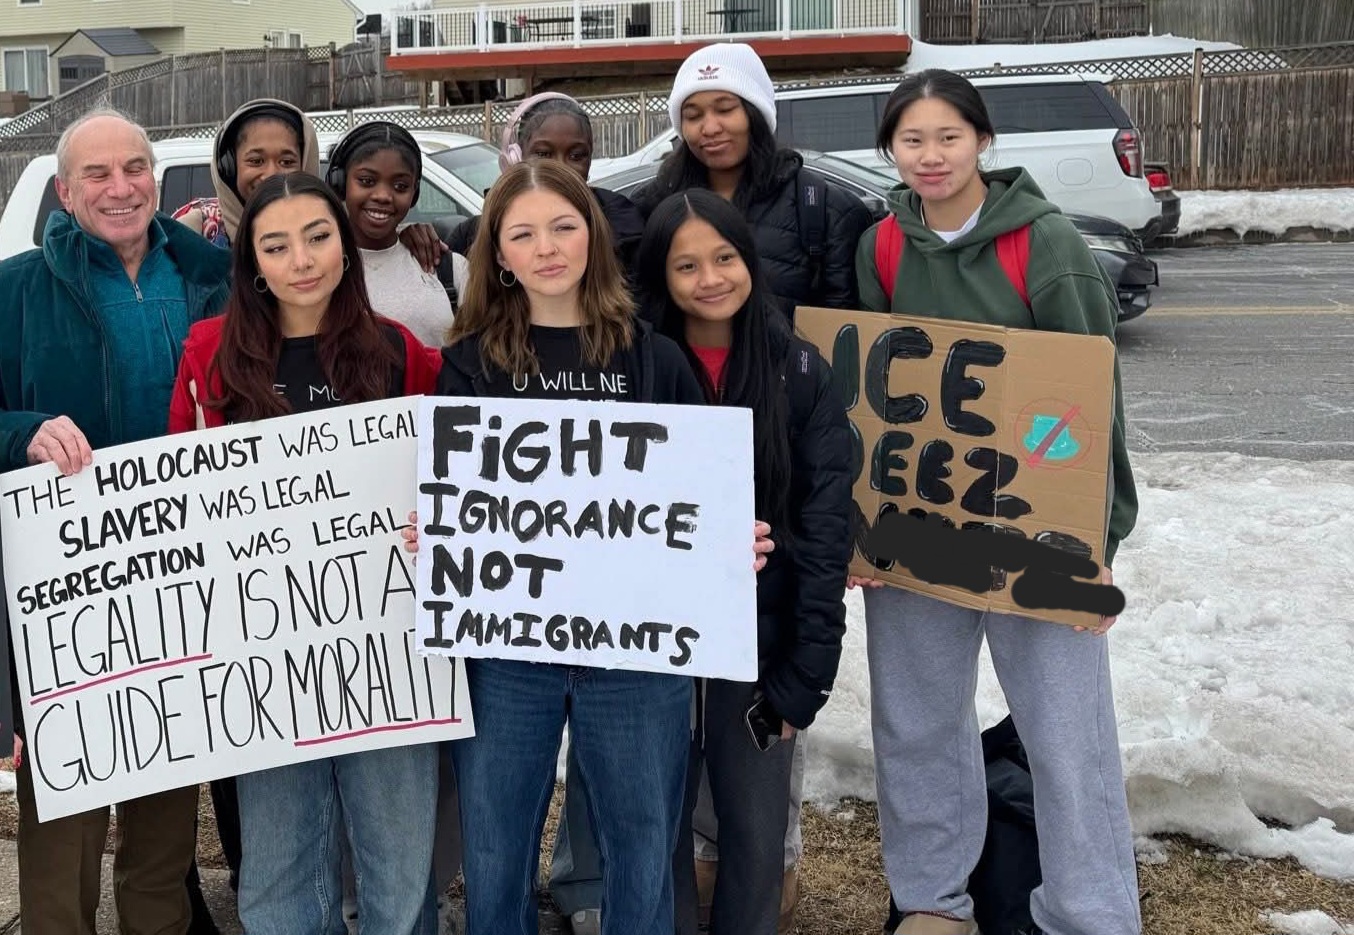 THE HOLOCAUST WAS LEGAL
SLAVERY WAS LEGAL
SEGREGATION WAS LEGAL
LEGALITY IS NOT A
GUIDE FOR MORALITY
U WILL NE
FiGHT
IGNORANCE
NOT
IMMIGRANTS
ICE
DEEZ